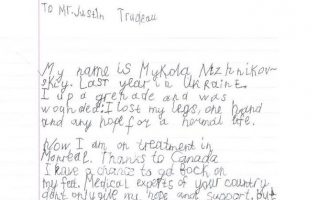 To Mr. Justin Trudeau
My name is Mykola Nizhnikov-
skyy. Last year in Ukraine
I up a grenade and was
wounded: I lost my legs, one hand
and any hope for a normal life.
Now I am on treatment in
Montreal. Thanks to Canada
I have a chance to go back on
my feet. Medical experts of your country
dont only give my hope and support, but